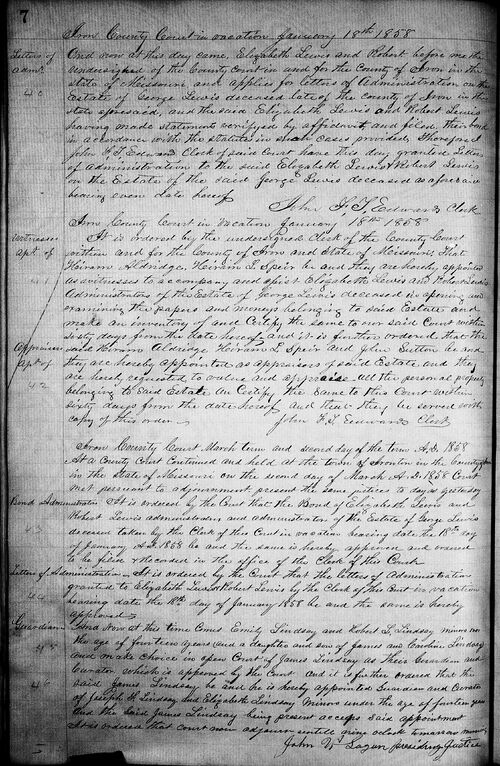 7
Iron County Court in vacation January 18th 1858
Letters of
Adm.
40
And now at this day came, Elizabeth Lewis and Robert before me the
undersigned of the County Court in and for the County of Iron in the
State of Missouri and applies for letters of Administration on the
Estate of George Lewis deceased late of the County of Iron in the
State aforesaid, and the said Elizabeth Lewis and Robert Lewis
having made statement verifyed by affidavit and filed their bond
in accordance with the statute in such cases provided, Therefore I
John F. T. Edwards Clerk of said Court have this day granted Letters
of Administration to the said Elizabeth Lewis & Robert Lewis
on the Estate of the said George Lewis deceased as aforesaid
bearing even date hereof
John F. T. Edwards Clerk
Iron County Court in Vacation January 18th 1858
Witnesses
Apt. of
41
It is ordered by the undersigned Clerk of the County Court
within and for the County of Iron and State of Missouri, That
Hiram Aldridge, Hiram L Speir be and they are hereby appointed
as witnesses to accompany and assist Elizabeth Lewis and Robert Lewis
Administrators of the Estate of George Lewis deceased in opening and
examining the papers and moneys belonging to said Estate and
make an inventory of and Certify the same to our said Court within
sixty days from the date hereof and it is further ordered that the
Appraisers
Apt. of
42
said Hiram Aldridge Hiram L. Speir and John Sutton be and
they are hereby appointed as appraisers of said Estate and they
are hereby requested to value and appraise all the personal property
belonging to said Estate and Certify the same to this Court within
sixty days from the date hereof and that they be served with
copy of this order
John F. T. Edwards Clerk
Iron County Court March term and second day of the term A.D. 1858
At a County Court continued and held at the town of Ironton in the County of Iron
in the State of Missouri on the second day of March A.D. 1858 Court
met pursuant to adjournment present the same justices to day as yesterday
Bond Administrator
43
It is ordered by the Court that the Bond of Elizabeth Lewis and
Robert Lewis administrators and administrator of the Estate of George Lewis
deceased taken by the Clerk of this Court in vacation bearing date the 18th day
of January A.D. 1858 be and the same is hereby approved and ordered
to be filed & Recorded in the office of the Clerk of this Court
Letters of Administration
44
It is ordered by the Court that the letters of Administration
granted to Elizabeth Lewis & Robert Lewis by the Clerk of this Court in vacation
bearing date the 18th day of January 1858 be and the same is hereby
approved
Guardian
45
And Now at this time Comes Emily Lindsay and Robert L. Lindsay minors over
the age of fourteen years and a daughter and son of James and Caroline Lindsay
and make choice in open Court of James Lindsay as their Guardian and
Curator which is approved by the Court and it is further ordered that the
46
said James Lindsay be and he is hereby appointed Guardian and Curator
of Joseph H Lindsay and Elizabeth Lindsay Minors under the age of fourteen years
and the said James Lindsay being present accepts said appointment
It is ordered that court now adjourn untill nine oclock tomorrow morning
John W Logan presiding Justice